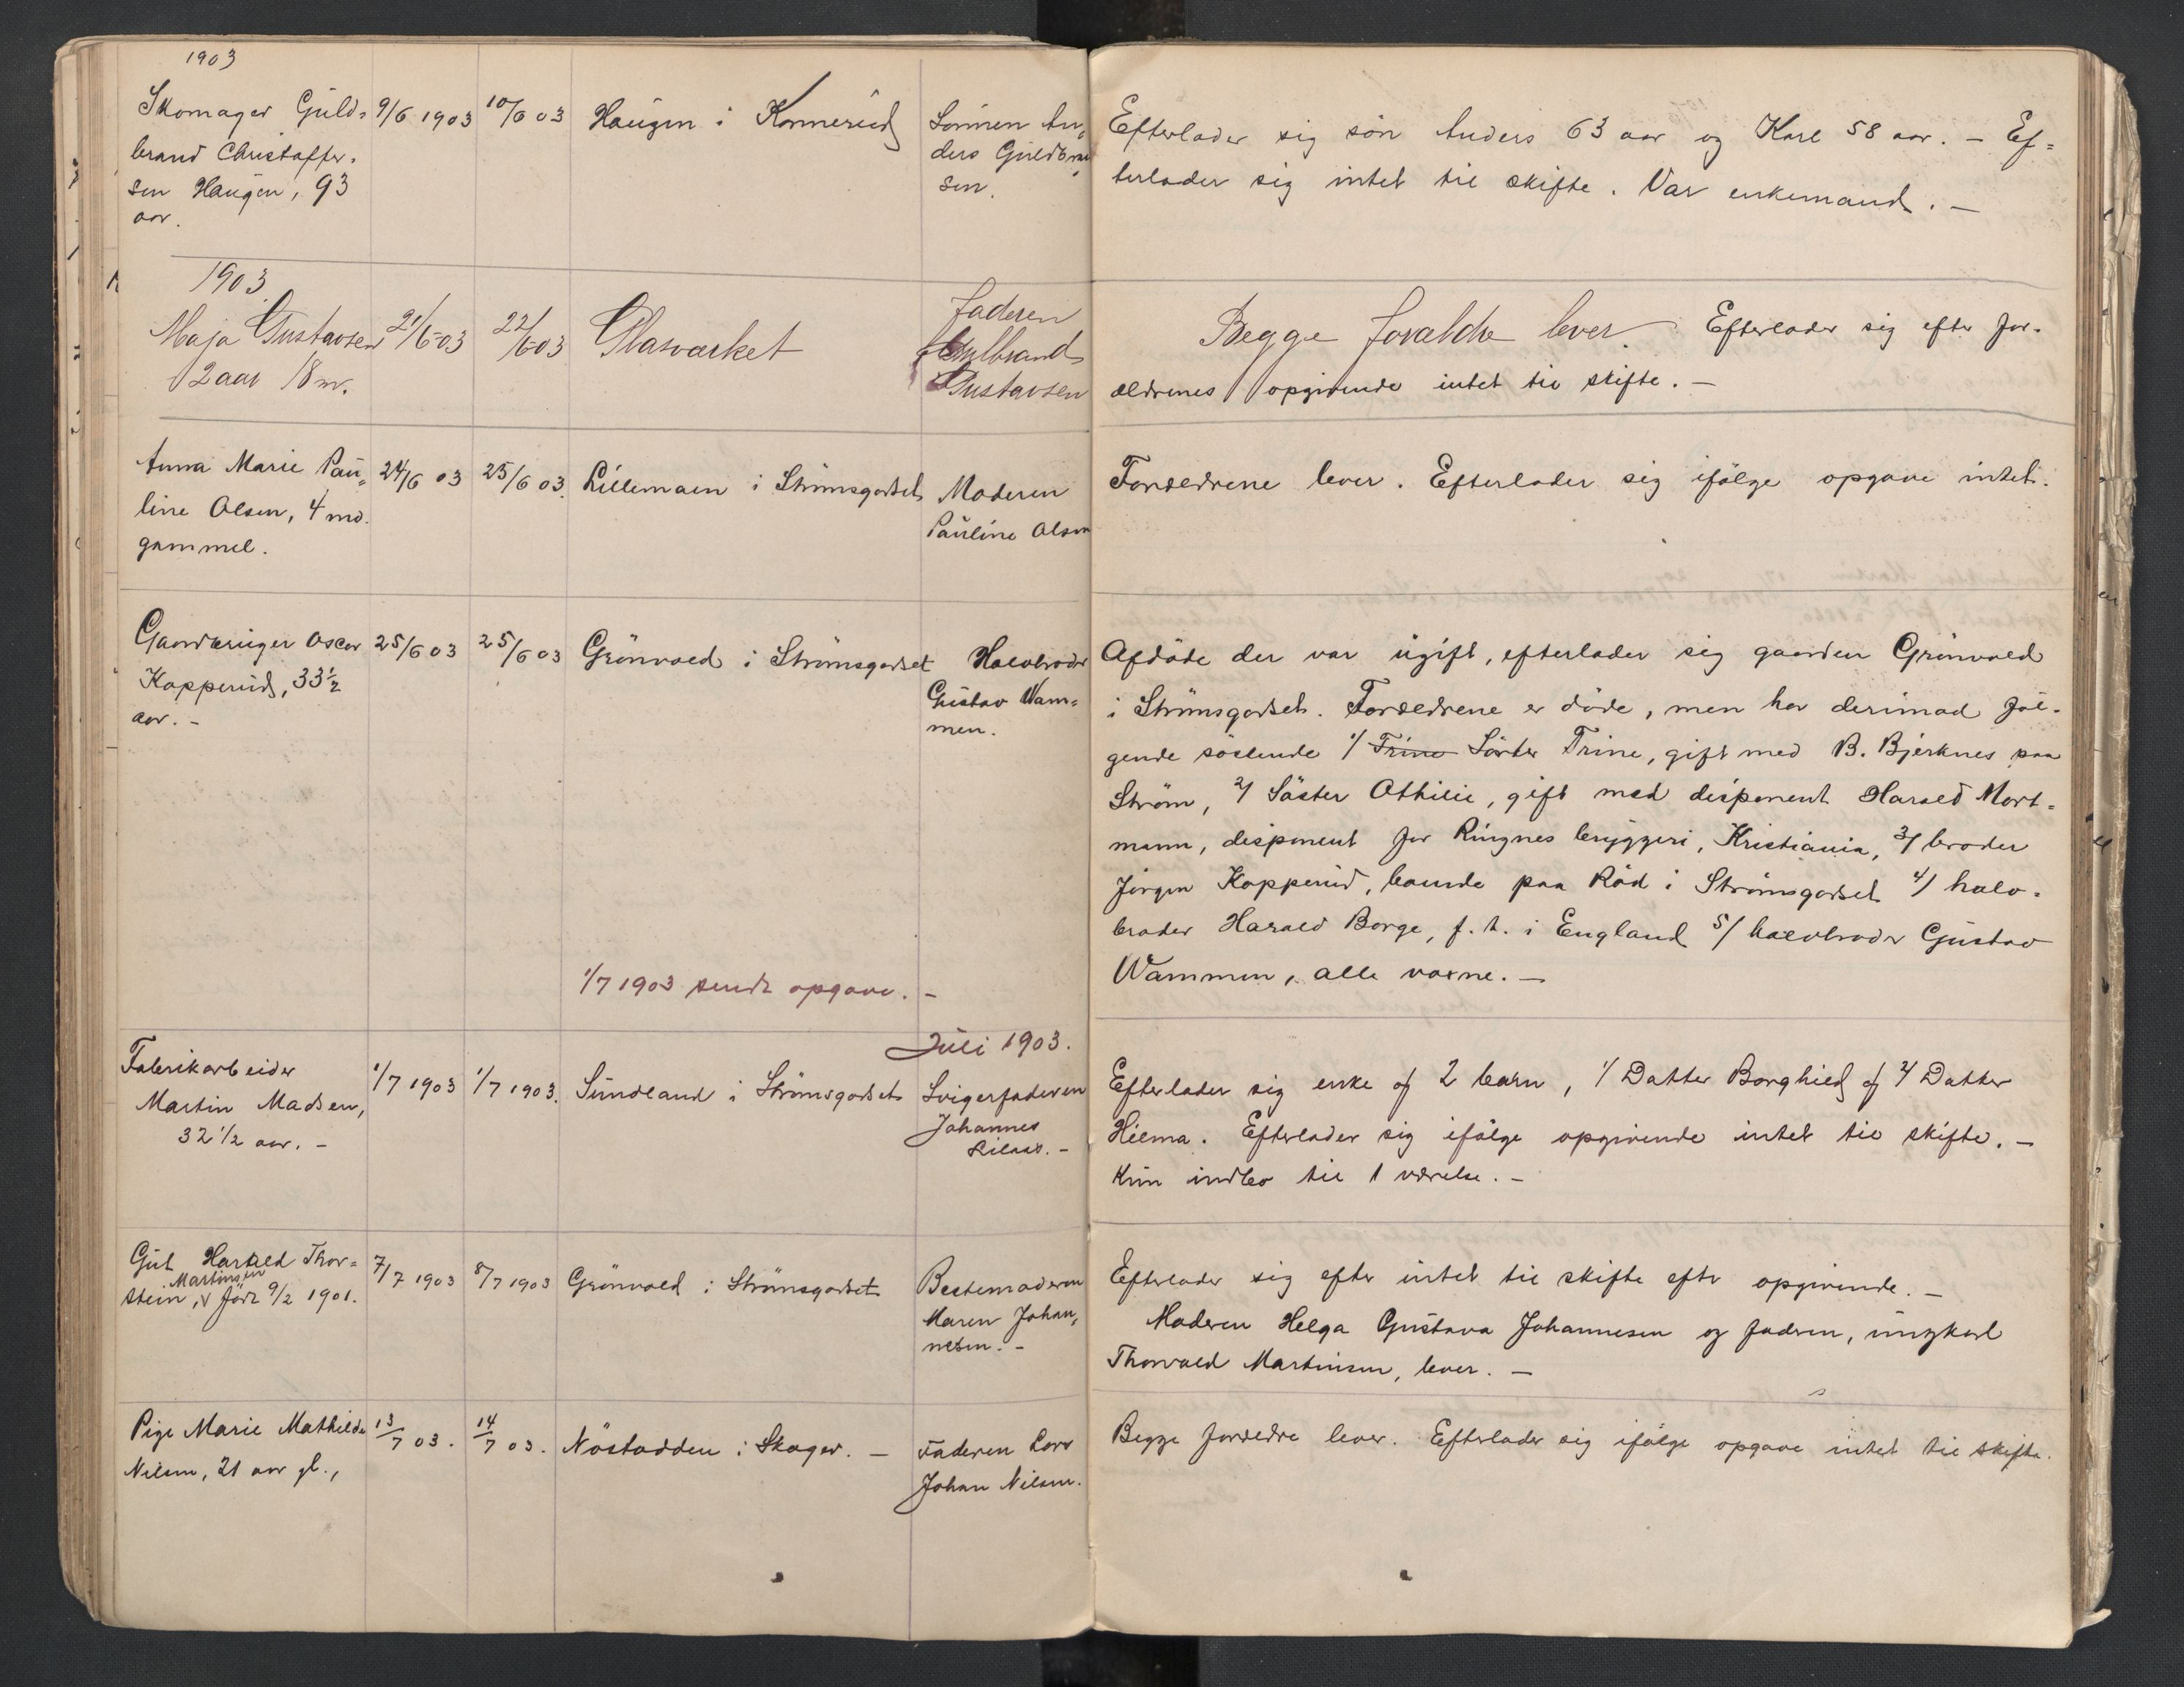 1903
Skomager Guld=
brand Christoffer=
sen Haugen, 93
aar.
9/6 1903
10/6 03
Haugen i Konnerud
Sönnen An=
ders Guldbrand
sen.
Efterlader sig sön Anders 63 aar og Karl 58 aar. – Ef=
terlader sig intet til skifte. Var enkemand. –
1903
Maja Gustavsen
2 aar 8 m.
21/6-03
22/6 03
Glasværket
Faderen
Gulbrand
Gustavsen
Begge forældre lever. Efterlader sig efter for=
ældrenes opgivende intet til skifte. –
Anna Marie Pau=
line Olsen, 4 md.
gammel.
24/6 03
25/6 03.
Lillemoen i Strömsgodset
Moderen
Pauline Olsen
Forældrene lever. Efterlader sig ifölge opgave intet.
Gaardbruger Oscar
Kopperud, 33½
aar. –
25/6 03
25/6 03
Grönvold i Strömsgodset
Halvbroder
Gustav Wam=
men.
Afdöde der var ugift, efterlader sig gaarden Grönvold
i Strömsgodset. Forældrene er döde, men har derimod föl=
gende söskende 1/ Trine Söster Trine, gift med B. Bjerknes paa
Ström, 2/ Söster Othilie, gift med disponent Harald Mort=
mann, disponent for Ringnes bryggeri, Kristiania, 3/ broder
Jörgen Kopperud, boende paa Röd i Strömsgodset 4/ halv=
broder Harald Borge, f. t. i England 5/ halvbroder Gustav
Wammen, alle voxne. –
1/7 1903 sendt opgave. –
Juli 1903.
Fabrikarbeider
Martin Madsen,
32 1/2 aar. –
1/7 1903
1/7 1903.
Sundland i Strömsgodset
Svigerfaderen
Johannes
Efterlader sig enke og 2 barn, 1/ Datter Borghild og 2/ Datter
Hilma. Efterlader sig ifölge opgivende intet til skifte. –
Kun indbo til 1 værelse. –
Gut Harald Thor=
Martinsen
stein, v född 9/2 1901.
7/7 1903
8/7 1903
Grönvold i Strömsgodset
Bestemoderen
Maren Johan=
nesen. –
Efterlader sig efter intet til skifte efter opgivende. –
Moderen Helga Gustava Johannesen og faderen, ungkarl
Thorvald Martinsen, lever. –
Pige Marie Mathilde
Nilsen, 21 aar gl.,
13/7 03.
14/7 03.
Nöstodden i Skoger. –
Faderen Lars
Johan Nilsen.
Begge forældre lever. Efterlader sig ifölge opgave intet til skifte.